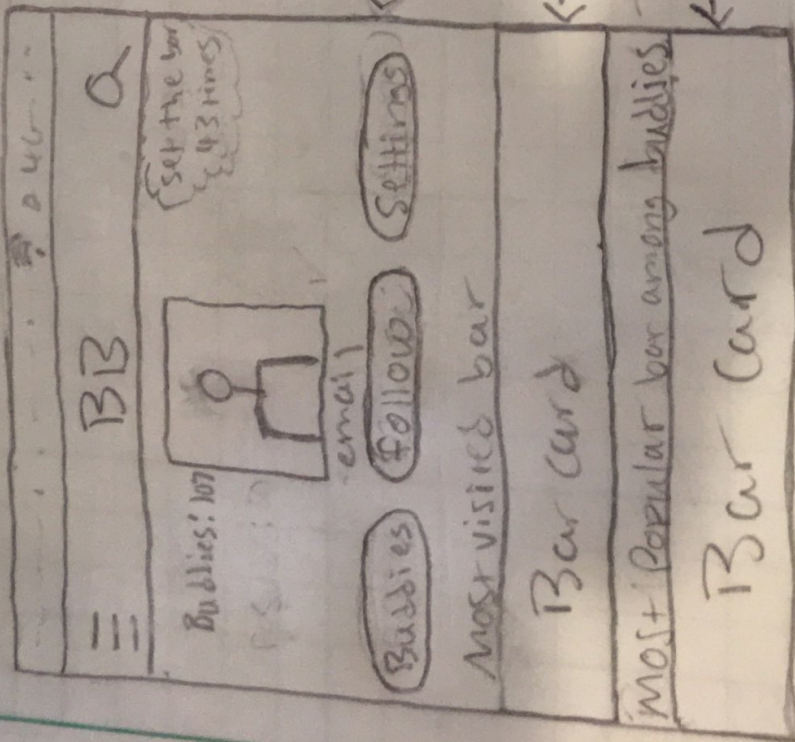 4G
BB
set the bar
43 times
Buddies: 107
email
Buddies
follow
settings
Most visited bar
Bar card
Most Popular bar among buddies
Bar card